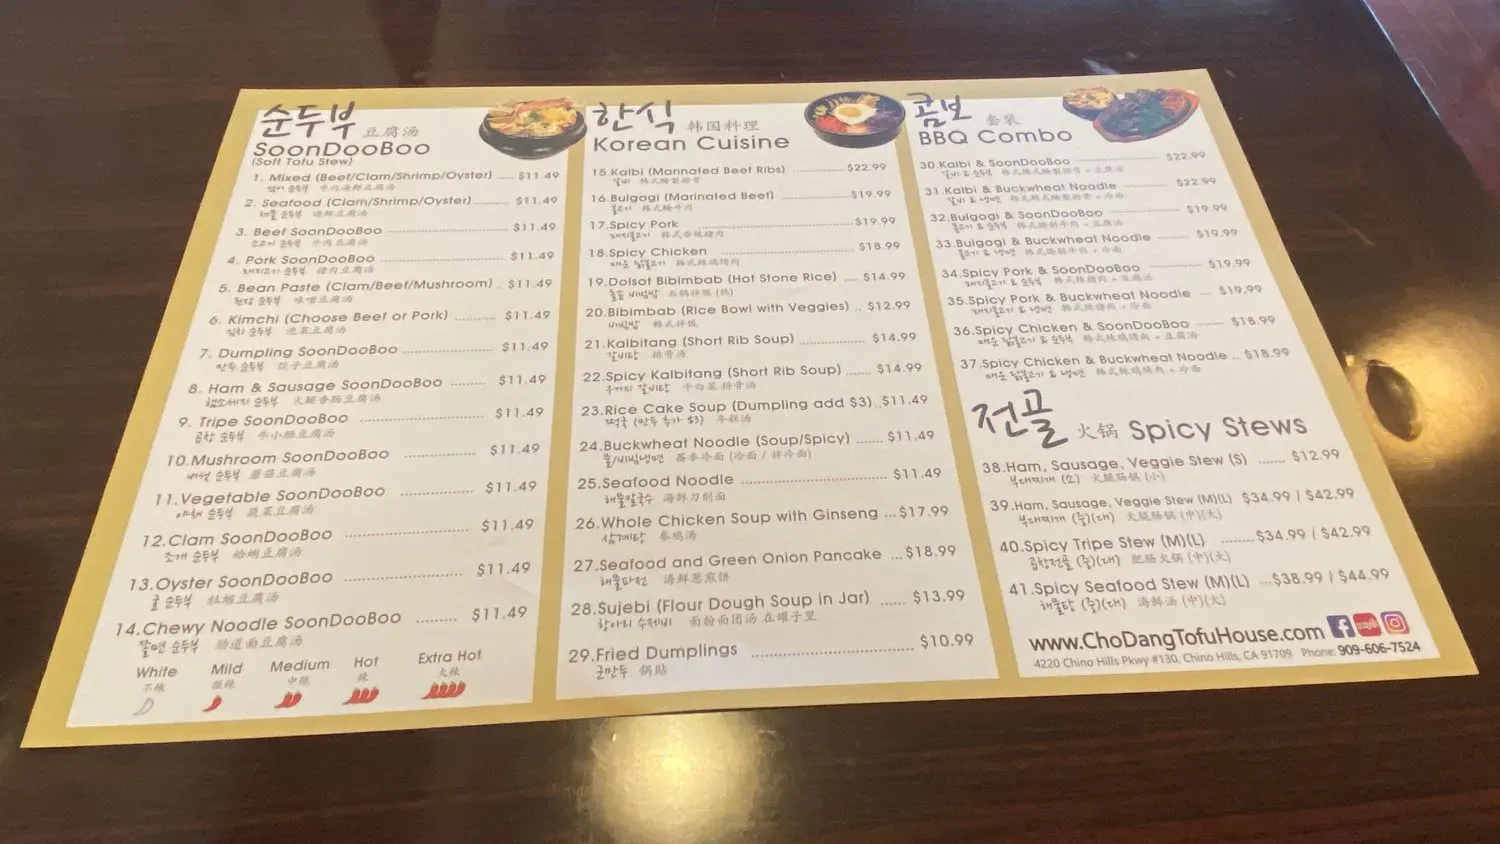 순두부 豆腐汤
SoonDooBoo
(Soft Tofu Stew)
1. Mixed (Beef/Clam/Shrimp/Oyster) ..... $11.49
섞어 순두부 牛肉海鲜豆腐汤
2. Seafood (Clam/Shrimp/Oyster) ..... $11.49
해물 순두부 海鲜豆腐汤
3. Beef SoonDooBoo ..... $11.49
소고기 순두부 牛肉豆腐汤
4. Pork SoonDooBoo ..... $11.49
돼지고기 순두부 猪肉豆腐汤
5. Bean Paste (Clam/Beef/Mushroom) .. $11.49
된장 순두부 味噌豆腐汤
6. Kimchi (Choose Beef or Pork) ..... $11.49
김치 순두부 泡菜豆腐汤
7. Dumpling SoonDooBoo ..... $11.49
만두 순두부 饺子豆腐汤
8. Ham & Sausage SoonDooBoo ..... $11.49
햄소세지 순두부 火腿香肠豆腐汤
9. Tripe SoonDooBoo ..... $11.49
곱창 순두부 牛小肠豆腐汤
10.Mushroom SoonDooBoo ..... $11.49
버섯 순두부 蘑菇豆腐汤
11.Vegetable SoonDooBoo ..... $11.49
야채 순두부 蔬菜豆腐汤
12.Clam SoonDooBoo ..... $11.49
조개 순두부 蛤蜊豆腐汤
13.Oyster SoonDooBoo ..... $11.49
굴 순두부 牡蛎豆腐汤
14.Chewy Noodle SoonDooBoo ..... $11.49
쫄면 순두부 筋道面豆腐汤
White Mild Medium Hot Extra Hot
不辣 微辣 中辣 辣 大辣
한식 韩国料理
Korean Cuisine
15.Kalbi (Marinated Beef Ribs) ..... $22.99
갈비 韩式腌製排骨
16.Bulgogi (Marinated Beef) ..... $19.99
불고기 韩式腌牛肉
17.Spicy Pork ..... $19.99
돼지불고기 韩式香辣猪肉
18.Spicy Chicken ..... $18.99
매운 닭불고기 韩式辣鸡烤肉
19.Dolsot Bibimbab (Hot Stone Rice) .... $14.99
돌솥 비빔밥 石锅拌饭 (热)
20.Bibimbab (Rice Bowl with Veggies) .. $12.99
비빔밥 韩式拌饭
21.Kalbitang (Short Rib Soup) ..... $14.99
갈비탕 排骨汤
22.Spicy Kalbitang (Short Rib Soup) ..... $14.99
우거지 갈비탕 干白菜排骨汤
23.Rice Cake Soup (Dumpling add $3)..$11.49
떡국 (만두 추가 $3) 年糕汤
24.Buckwheat Noodle (Soup/Spicy) ..... $11.49
물/비빔냉면 荞麥冷面 (冷面 / 拌冷面)
25.Seafood Noodle ..... $11.49
해물칼국수 海鲜刀削面
26.Whole Chicken Soup with Ginseng ...$17.99
삼계탕 参鸡汤
27.Seafood and Green Onion Pancake ...$18.99
해물파전 海鲜葱煎饼
28.Sujebi (Flour Dough Soup in Jar) ..... $13.99
항아리 수제비 面粉面团汤 在罐子里
29.Fried Dumplings ..... $10.99
군만두 锅贴
콤보 套装
BBQ Combo
30.Kalbi & SoonDooBoo ..... $22.99
갈비 & 순두부 韩式韩式腌製排骨 + 豆腐汤
31.Kalbi & Buckwheat Noodle ..... $22.99
갈비 & 냉면 韩式韩式腌製排骨 + 冷面
32.Bulgogi & SoonDooBoo ..... $19.99
불고기 & 순두부 韩式腌制牛肉 + 豆腐汤
33.Bulgogi & Buckwheat Noodle ..... $19.99
불고기 & 냉면 韩式腌制牛肉 + 冷面
34.Spicy Pork & SoonDooBoo ..... $19.99
돼지불고기 & 순두부 韩式辣猪肉 + 豆腐汤
35.Spicy Pork & Buckwheat Noodle ... $19.99
돼지불고기 & 냉면 韩式辣猪肉 + 冷面
36.Spicy Chicken & SoonDooBoo ..... $18.99
매운 닭불고기 & 순두부 韩式辣鸡烤肉 + 豆腐汤
37.Spicy Chicken & Buckwheat Noodle .. $18.99
매운 닭불고기 & 냉면 韩式辣鸡烤肉 + 冷面
전골 火锅 Spicy Stews
38.Ham, Sausage, Veggie Stew (S) ..... $12.99
부대찌개 (소) 火腿肠锅 (小)
39.Ham, Sausage, Veggie Stew (M)(L) $34.99 / $42.99
부대찌개 (중)(대) 火腿肠锅 (中)(大)
40.Spicy Tripe Stew (M)(L) ........$34.99 / $42.99
곱창전골 (중)(대) 肥肠火锅 (中)(大)
41.Spicy Seafood Stew (M)(L) ...$38.99 / $44.99
해물탕 (중)(대) 海鲜汤 (中)(大)
www.ChoDangTofuHouse.com
4220 Chino Hills Pkwy #130, Chino Hills, CA 91709 Phone: 909-606-7524